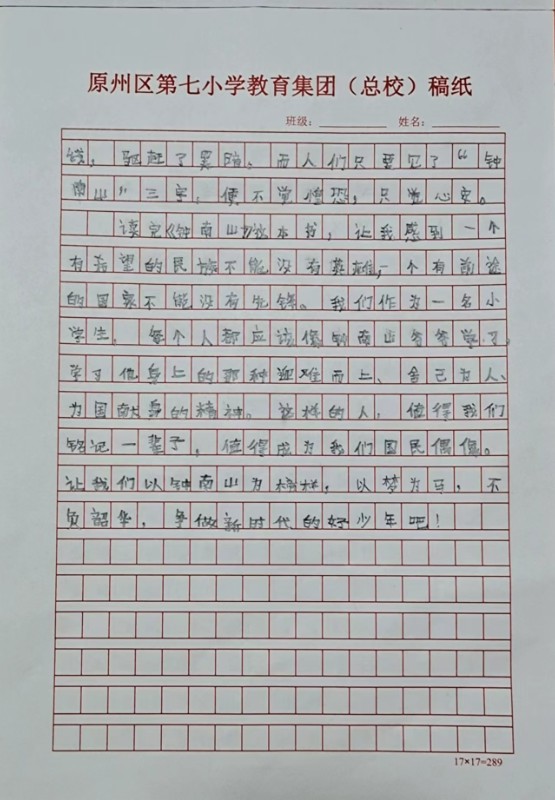 原州区第七小学教育集团（总校）稿纸
班级：　姓名：
线，驱赶了黑暗。而人们只要见了“钟
南山”三字，便不觉惶恐，只觉心安。
读完《钟南山》这本书，让我感到一个
有希望的民族不能没有英雄，一个有前途
的国家不能没有先锋。我们作为一名小
学生，每个人都应该像钟南山爷爷学习，
学习他身上的那种迎难而上、舍己为人、
为国献身的精神。这样的人，值得我们
铭记一辈子，值得成为我们国民偶像。
让我们以钟南山为榜样，以梦为马，不
负韶华，争做新时代的好少年吧！
17×17=289